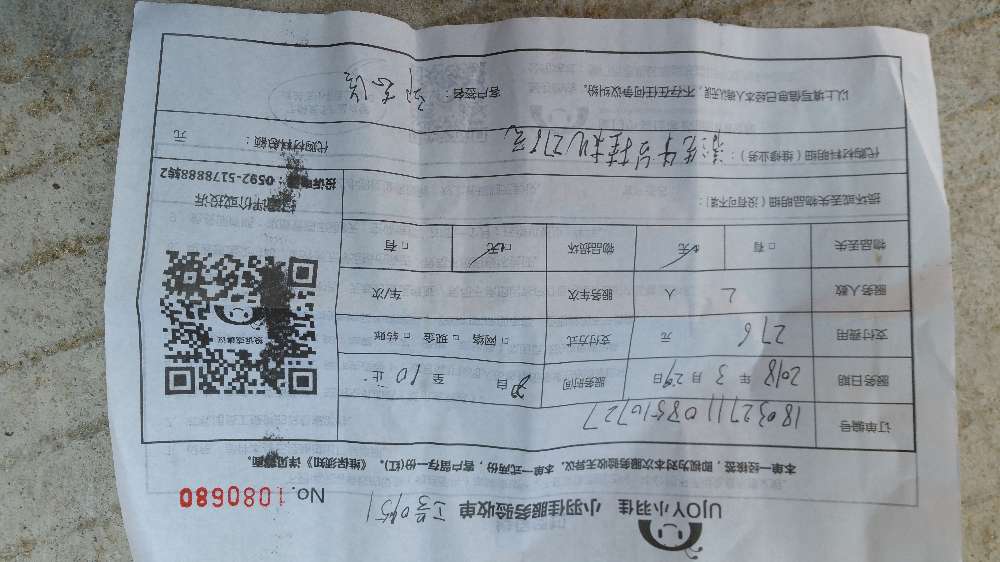 UJOY小羽佳 小羽佳服务验收单 工号0451
No. 1080680
本单一经接签，即视为对本次服务验收无异议。本单一式两份，客户留存一份(红)。《维保须知》详见背面。
订单编号 18032711108510727
服务日期 2018 年 3 月 29 日 服务时间 自 至 10 止
支付费用 276 元 支付方式 □ 网络 □ 现金 □ 转账
服务人数 2 人 服务车次 车/次
物品丢失 □ 有 ☑ 无 物品损坏 ☑ 无 □ 有
损坏或丢失物品明细（没有可不填）：
代购材料明细（维修业务）：
代购材料总额： 元
以上填写信息已经本人确认无误，不存在任何争议纠纷。 客户签名：
投诉或建议
扫描评价或投诉
投诉电话：0592-5178888转2